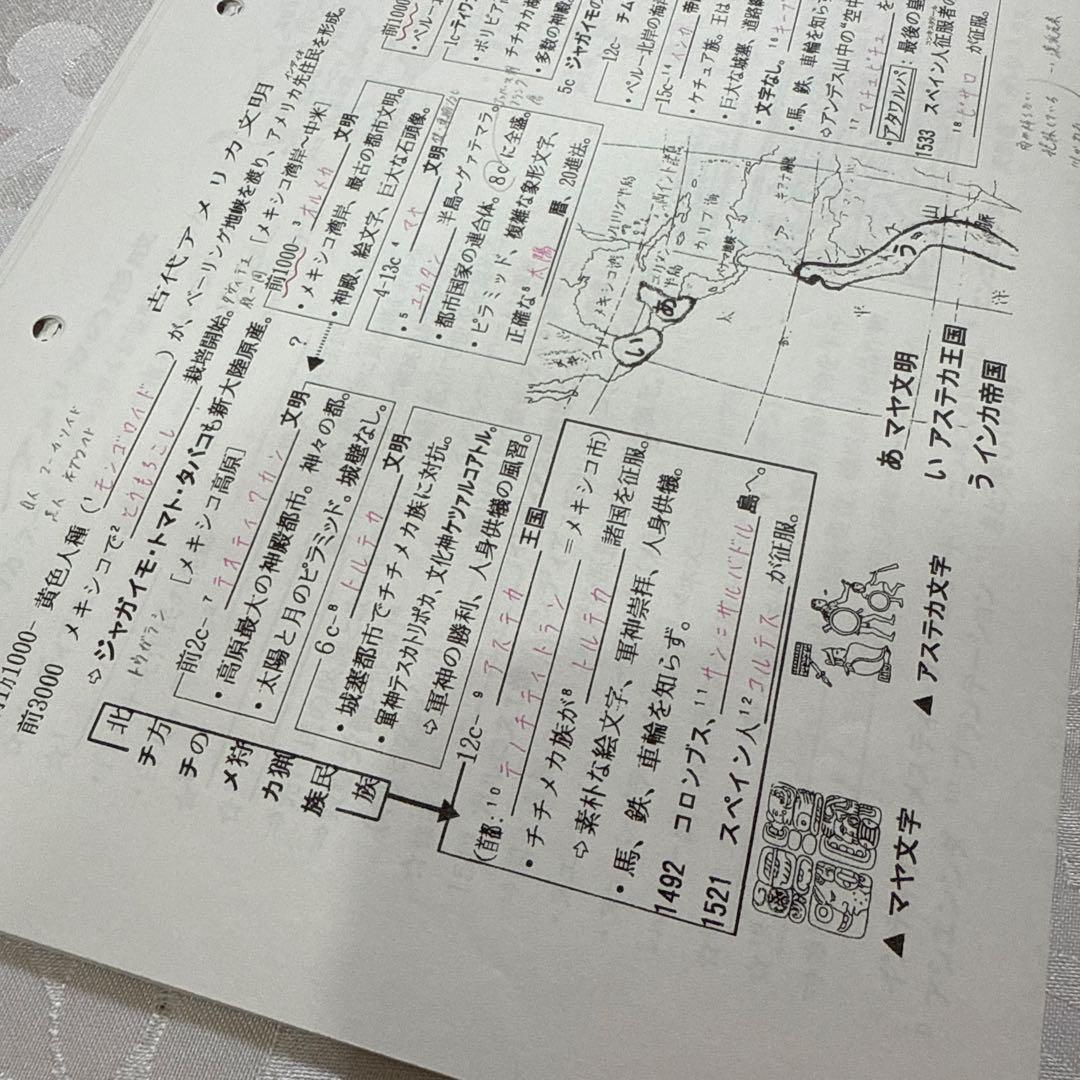 古代アメリカ文明
前3000
黄色人種(1 モンゴロイド )が、ベーリング地峡を渡り、アメリカ先住民を形成。
メキシコで2 とうもろこし 栽培開始。
⇨ジャガイモ・トマト・タバコも新大陸原産。
トウガラシ
[メキシコ高原]
前2c- 7 テオティワカン 文明
・高原最大の神殿都市。神々の都。
・太陽と月のピラミッド。城壁なし。
6c- 8 トルテカ 文明
・城塞都市でチチメカ族に対抗。
・軍神テスカトリポカ、文化神ケツァルコアトル。
⇨軍神の勝利、人身供犠の風習。
北方の狩猟民族
チチメカ族
12c- 9 アステカ 王国
(首都:10 テノチティトラン =メキシコ市)
・チチメカ族が8 トルテカ 諸国を征服。
⇨素朴な絵文字、軍神崇拝、人身供犠。
・馬、鉄、車輪を知らず。
1492 コロンブス、11 サンサルバドル 島へ。
1521 スペイン人12 コルテス が征服。
[メキシコ湾岸〜中米]
前1000- 3 オルメカ 文明
・メキシコ湾岸、最古の都市文明。
・神殿、絵文字、巨大な石頭像。
?
4-13c 4 マヤ 文明
・5 ユカタン 半島〜グァテマラ。
・都市国家の連合体。8cに全盛。
・ピラミッド、複雑な象形文字、
正確な6 太陽 暦、20進法。
前1000
・ペルー
1c-ティワ
・ボリビア
・チチカカ
・多数の神殿
5c ジャガイモの
12c- チム
・ペルー北岸の海
15c-14 インカ 帝
・ケチュア族。王は
・巨大な城塞、道路
・文字なし。16 キープ
・馬、鉄、車輪を知ら
⇨アンデス山中の"空中
17 マチュピチュ を
・アタワルパ:最後の皇
1533 スペイン人征服者の
コンキスタドール
18 ピサロ が征服。
メキシコ湾
カリブ海
パナマ地峡
太
平
洋
アンデス山脈
あ
い
う
あ マヤ文明
い アステカ王国
う インカ帝国
▲ アステカ文字
▲ マヤ文字